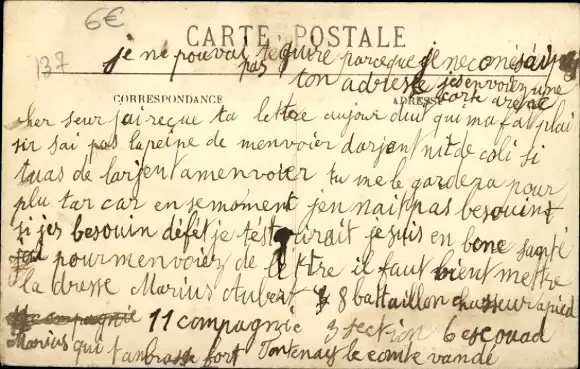 6€
CARTE POSTALE
137
je ne pouvai pas tequire parceque je neconésai pas
ton adresse jes envoier une
carte a rené
CORRESPONDANCE
ADRESSE
cher seur jai reçue ta lettre aujourdui qui ma fai plai
sir sai pas lapeine de menvoier darjent nit de coli si
tuas de larjent amenvoier tu me le gardera pour
plu tar car en se moment jen nait pas besouint
si jes besouin défét je tést irait je suis en bone santé
pour menvoier de lettre il faut bient mettre
la dresse Marius Aubert 8 battaillon chasseur a pied
compagnie 11 compagnie 3 section 6 escouad
Marius qui tanbrasse fort Fontenay le comte vandé